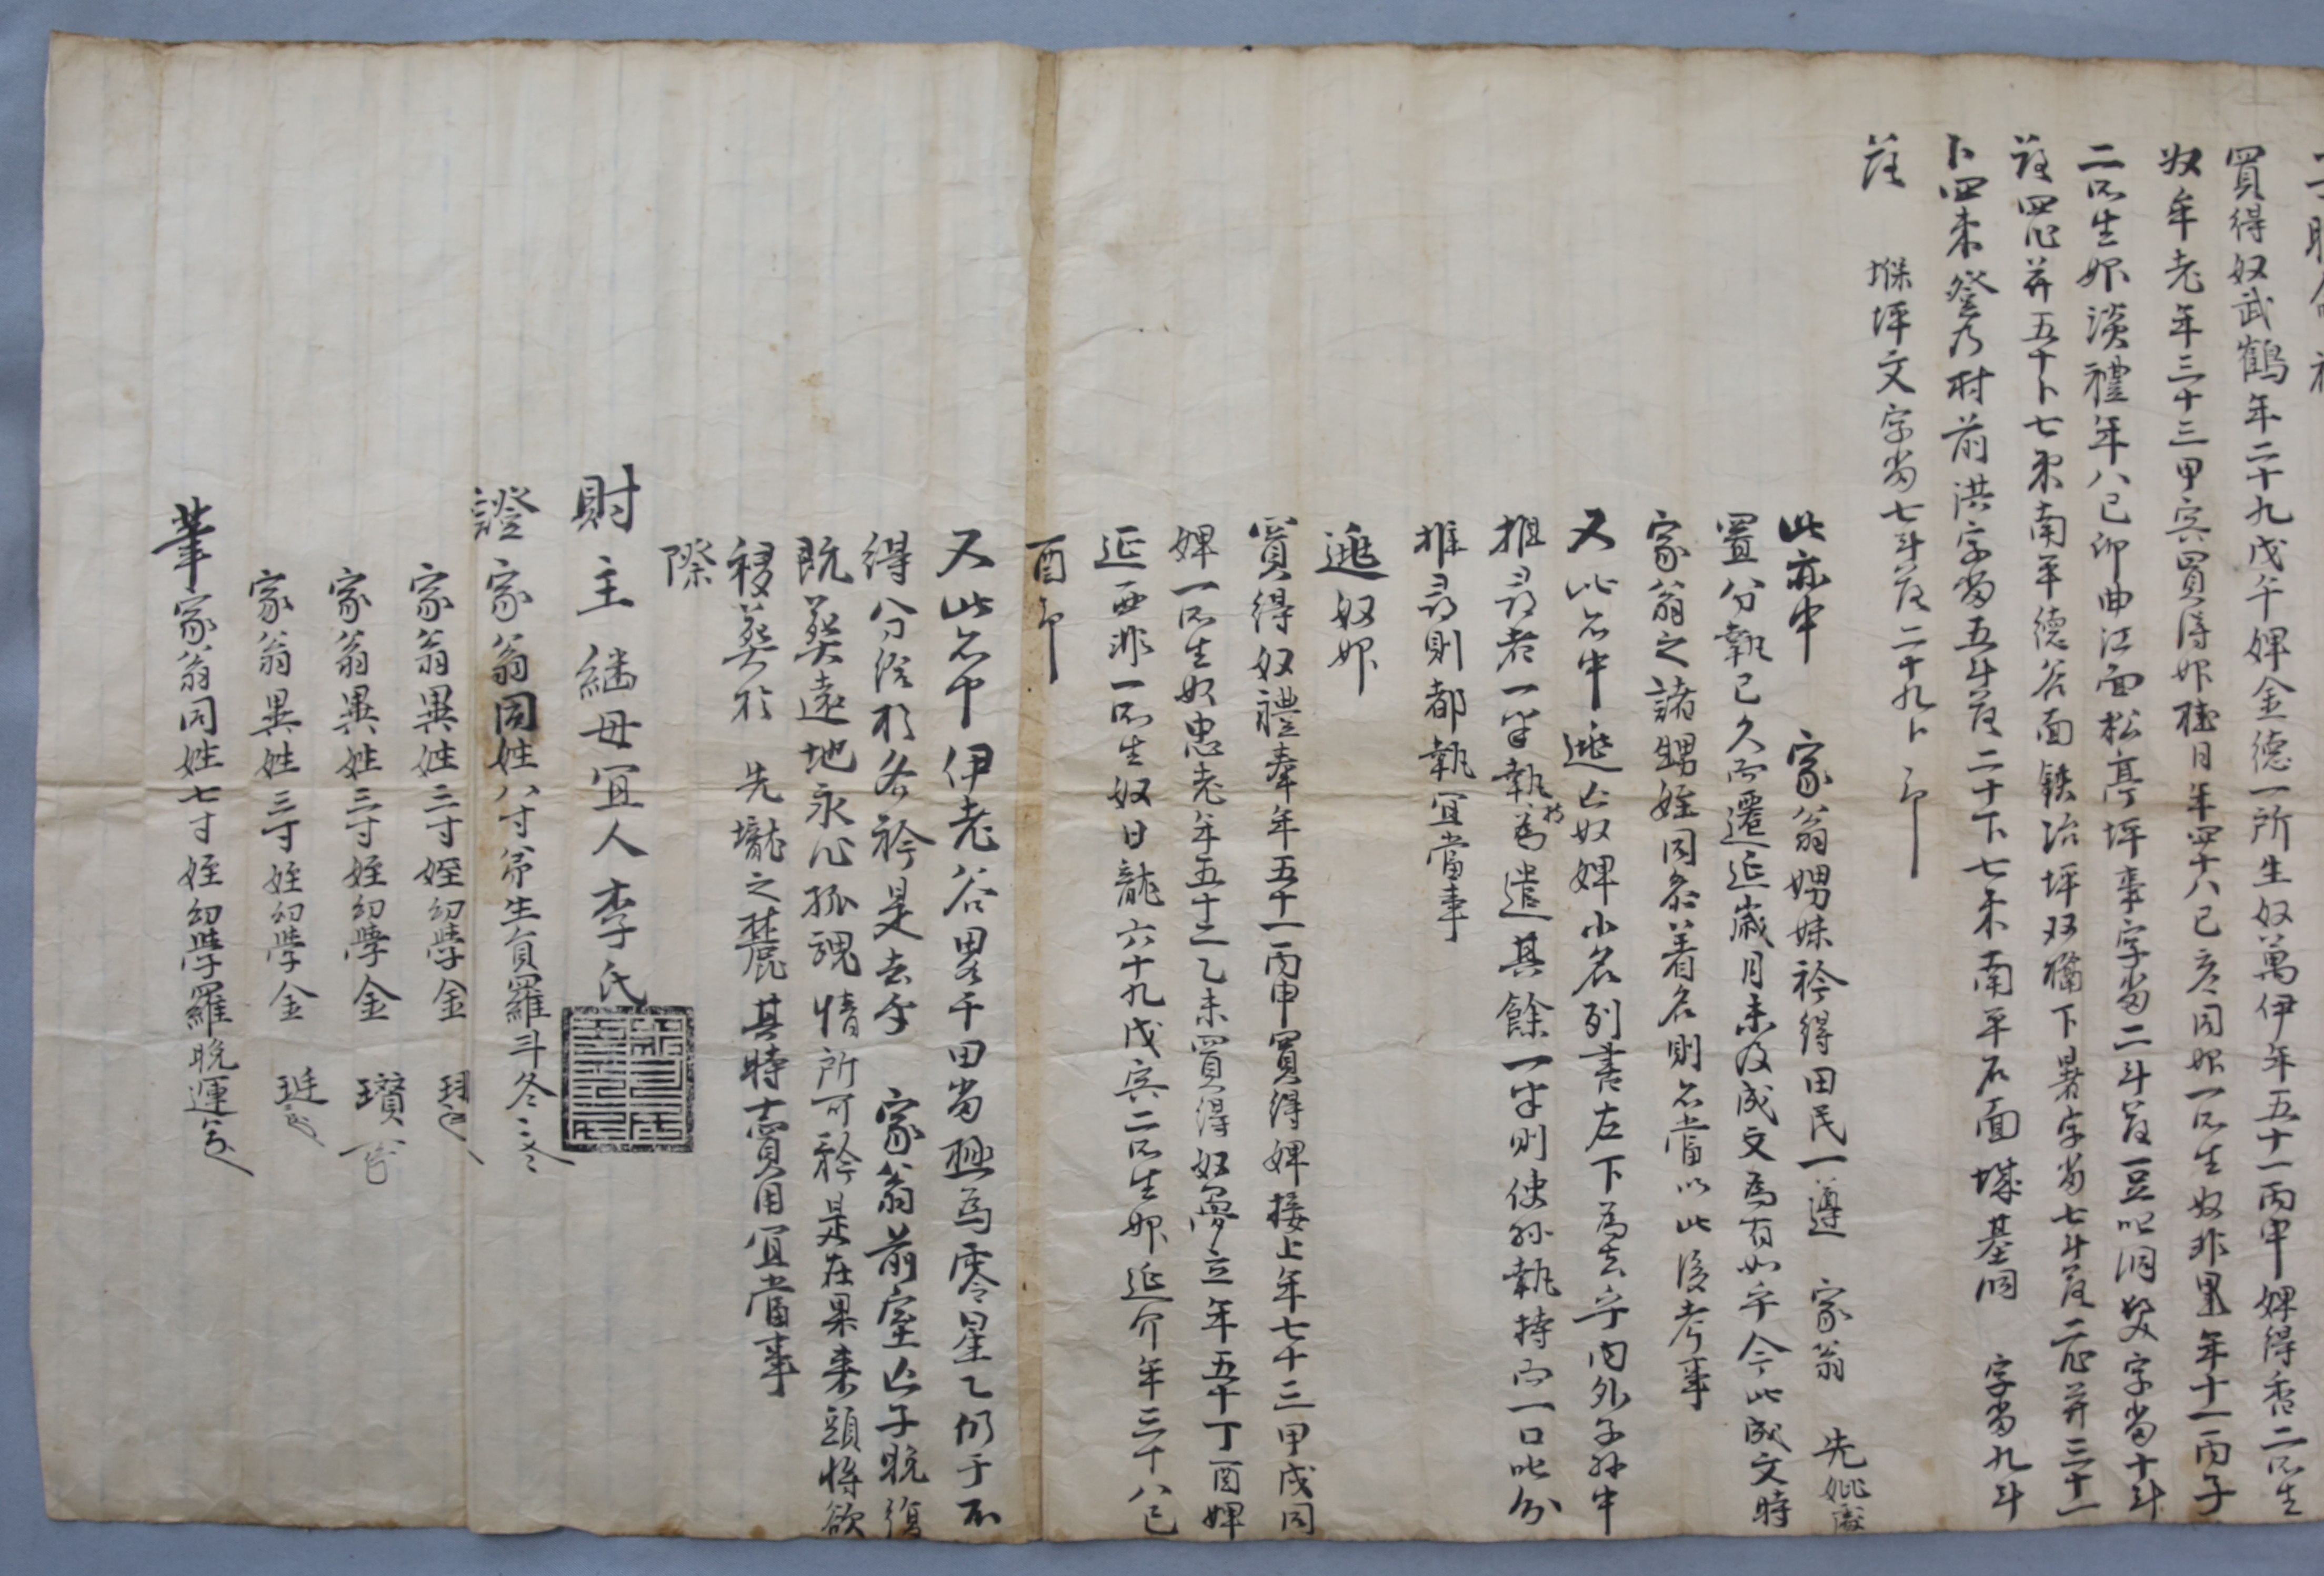 買得奴武鶴年二十九戊午婢金德一所生奴萬伊年五十一丙申婢得香二所生
奴牟老年三十三甲寅買得婢桂月年四十八己亥同婢一所生奴非里年十一丙子
二所生婢淡禮年八己卯曲江面松亭坪事字畓二斗落一豆也洞 字畓十斗
落四作幷五十卜七束南平德谷面鉄冶坪双 下暑字畓七斗落二作幷三十一
卜四束登乃村前洪字畓五斗落二十下七束南平石面 基洞 字畓九斗
落 坪文字畓七斗落二十九卜印
此亦中 家翁娚妹衿得田民一遵 家翁 先妣
置分執已久而遷延歲月未及成文爲有如乎今此成文時
家翁之諸甥姪同參着名則名當以此後考事
又此亦中逃亡奴婢小名列書左下爲去乎內外子孫中
推尋者一半執持爲遣其餘一半則使孫執持而一口叱分
推尋則都執宜當事
逃奴婢
買得奴禮奉年五十一丙申買得婢接上年七十三甲戌同
婢一所生奴忠老年五十二乙未買得奴夢立年五十丁酉婢
延 非一所生奴日龍六十九戊寅二所生婢延介年三十八己
酉印
又此亦中伊老谷畧干田畓極爲零星乙仍于不
得分給於各衿是去乎 家翁前室亡子晩復
旣葬遠地永心孤魂情所可矜是在果來頭將欲
移葬於 先壠之麓其時賣用宜當事
際
財主繼母宜人李氏
證家翁同姓八寸弟生員羅斗冬
家翁異姓三寸姪幼學金
家翁異姓三寸姪幼學金 瓚
家翁異姓三寸姪幼學金
筆家翁同姓七寸姪幼學羅晩運